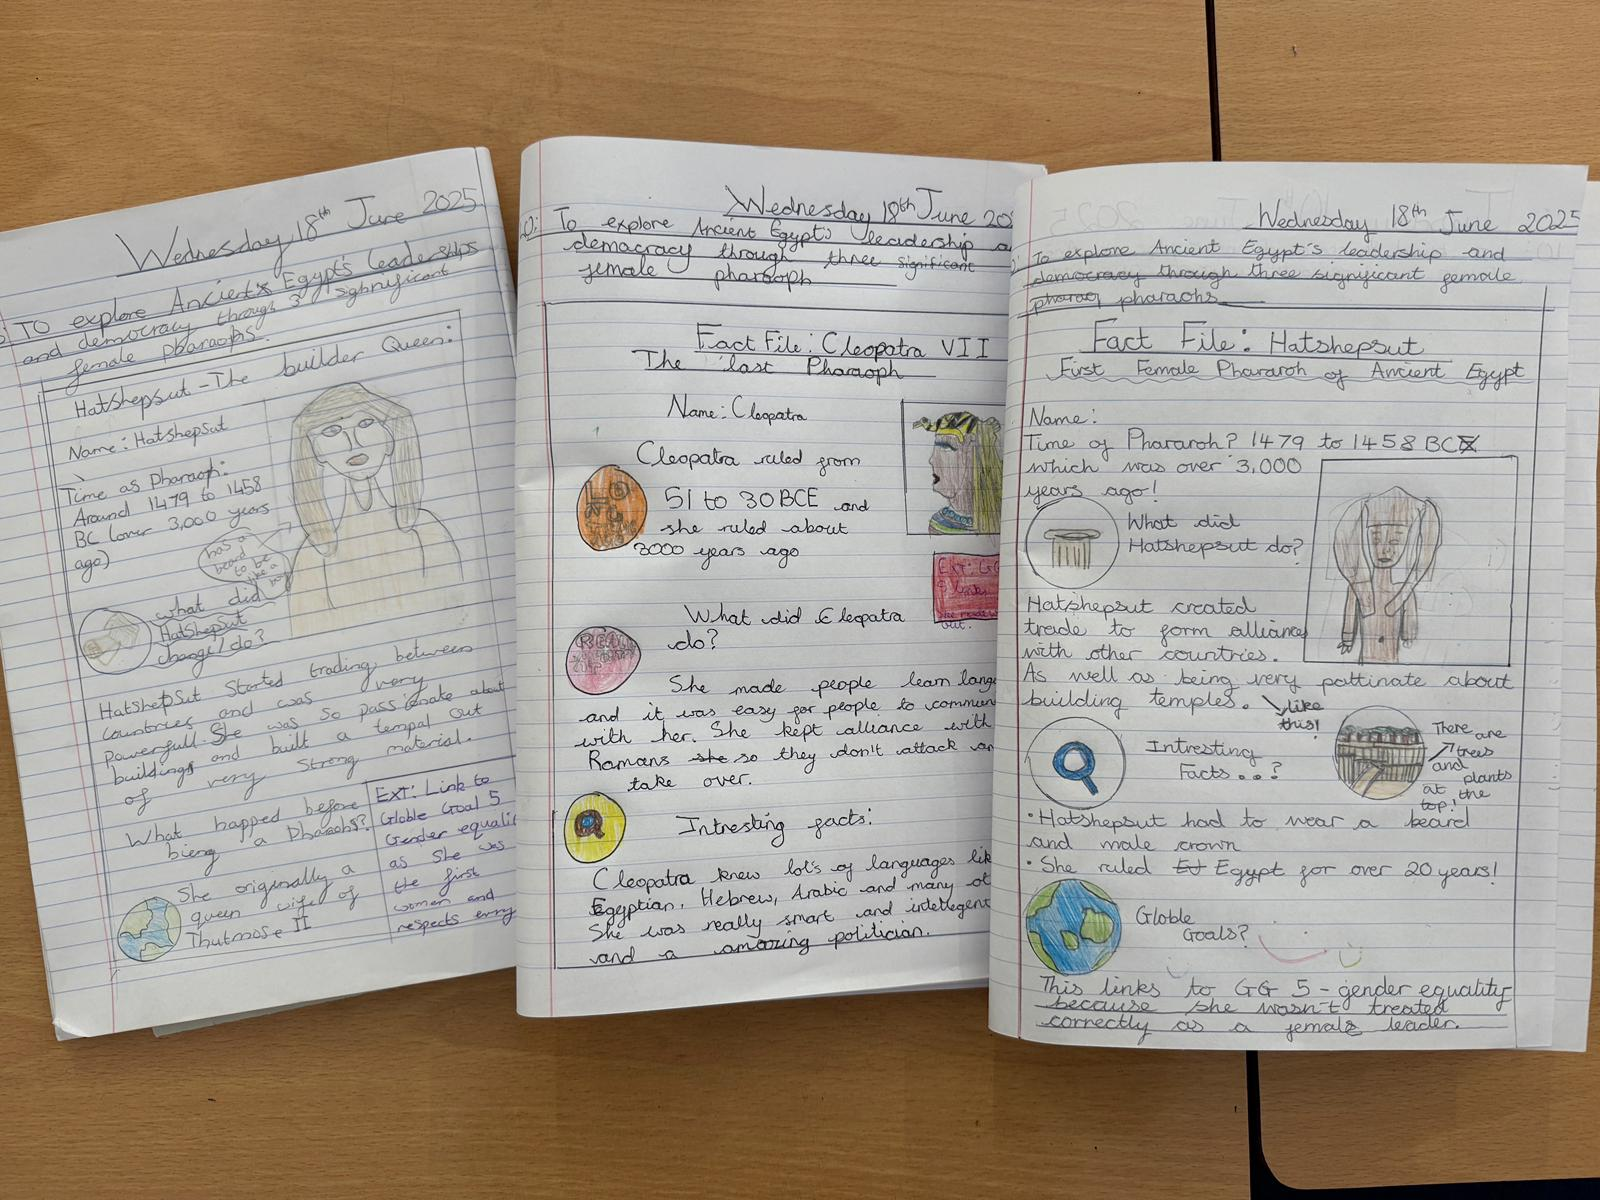 Wednesday 18th June 2025
TO explore Ancient's Egypt's leaderships
and democracy through 3 significant
female pharaohs.
Hatshepsut - The builder Queen:
Name: Hatshepsut
Time as Pharaoh:
Around 1479 to 1458
BC (over 3,000 years
ago)
has a
beard
to be
like a
boy
what did
Hatshepsut
change/do?
Hatshepsut Started trading between
countries and was very
powerfull. She was so passionate about
buildings and built a tempal out
of very strong material.
What happed before
bieng a Pharaoh?
She originally a
queen wife of
Thutmose II
EXT: Link to
Globle Goal 5
Gender equali
as she was
the first
women and
respects every
Wednesday 18th June 20
LO: To explore Ancient Egypt's leadership a
democracy through three significant
female pharaoph
Fact File: Cleopatra VII
The last Pharaoph
Name: Cleopatra
Cleopatra ruled from
51 to 30 BCE and
she ruled about
3000 years ago
EXT: GG
5 links
out.
What did Cleopatra
do?
She made people learn lang
and it was easy for people to commun
with her. She kept alliance with
Romans she so they don't attack an
take over.
Intresting facts:
Cleopatra knew lot's of languages lik
Egyptian, Hebrew, Arabic and many ot
She was really smart and intellegent
and a amazing politician.
Wednesday 18th June 2025
To explore Ancient Egypt's leadership and
democracy through three significant female
pharaq pharaohs.
Fact File: Hatshepsut
First Female Phararoh of Ancient Egypt
Name:
Time of Phararoh? 1479 to 1458 BCE
which was over 3,000
years ago!
What did
Hatshepsut do?
Hatshepsut created
trade to form alliance
with other countries.
As well as being very pattinate about
building temples.
like
this!
There are
trees
and
plants
at the
top!
Intresting
Facts...?
• Hatshepsut had to wear a beard
and male crown
• She ruled Et Egypt for over 20 years!
Globle
Goals?
This links to GG 5 - gender equality
because she wasn't treated
correctly as a female leader.